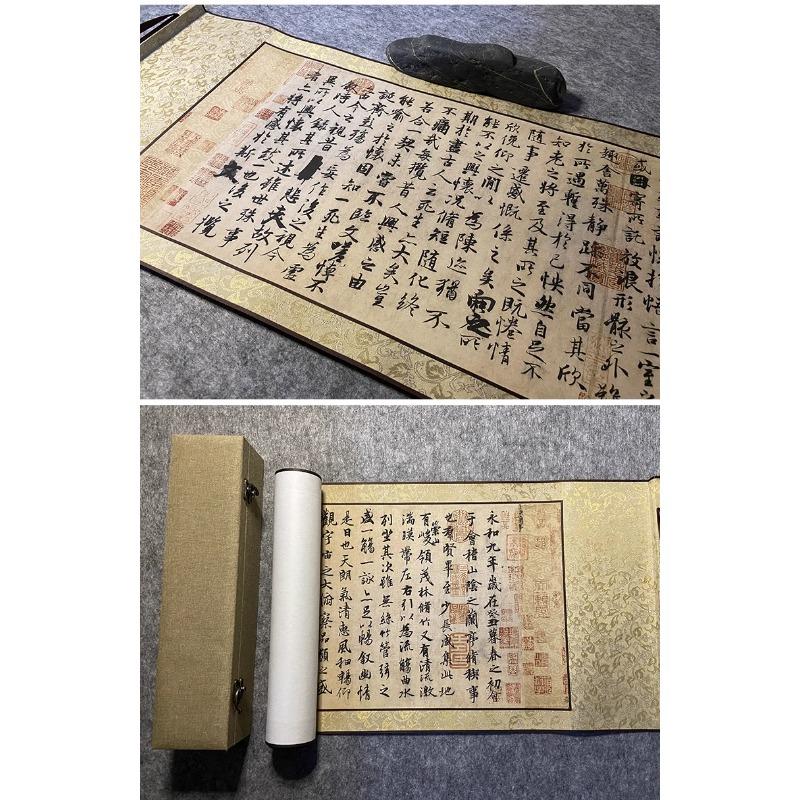 抱悟言一室
或因寄所託放浪形骸之外雖
趣舍萬殊靜躁不同當其欣
於所遇蹔得於己怏然自足不
知老之將至及其所之既惓情
隨事遷感慨係之矣向之所
欣俛仰之閒以為陳迹猶不
能不以之興懷況脩短隨化終
期於盡古人云死生亦大矣豈
不痛哉每攬昔人興感之由
若合一契未嘗不臨文嗟悼不
能喻之於懷固知一死生為虛
誕齊彭殤為妄作後之視今
亦由今之視昔悲夫故列
敘時人錄其所述雖世殊事
異所以興懷其致一也後之攬
者亦將有感於斯文
永和九年歲在癸丑暮春之初會
于會稽山陰之蘭亭脩禊事
也羣賢畢至少長咸集此地
有崇山峻領茂林脩竹又有清流激
湍暎帶左右引以為流觴曲水
列坐其次雖無絲竹管弦之
盛一觴一詠亦足以暢敘幽情
是日也天朗氣清惠風和暢仰
觀宇宙之大俯察品類之盛